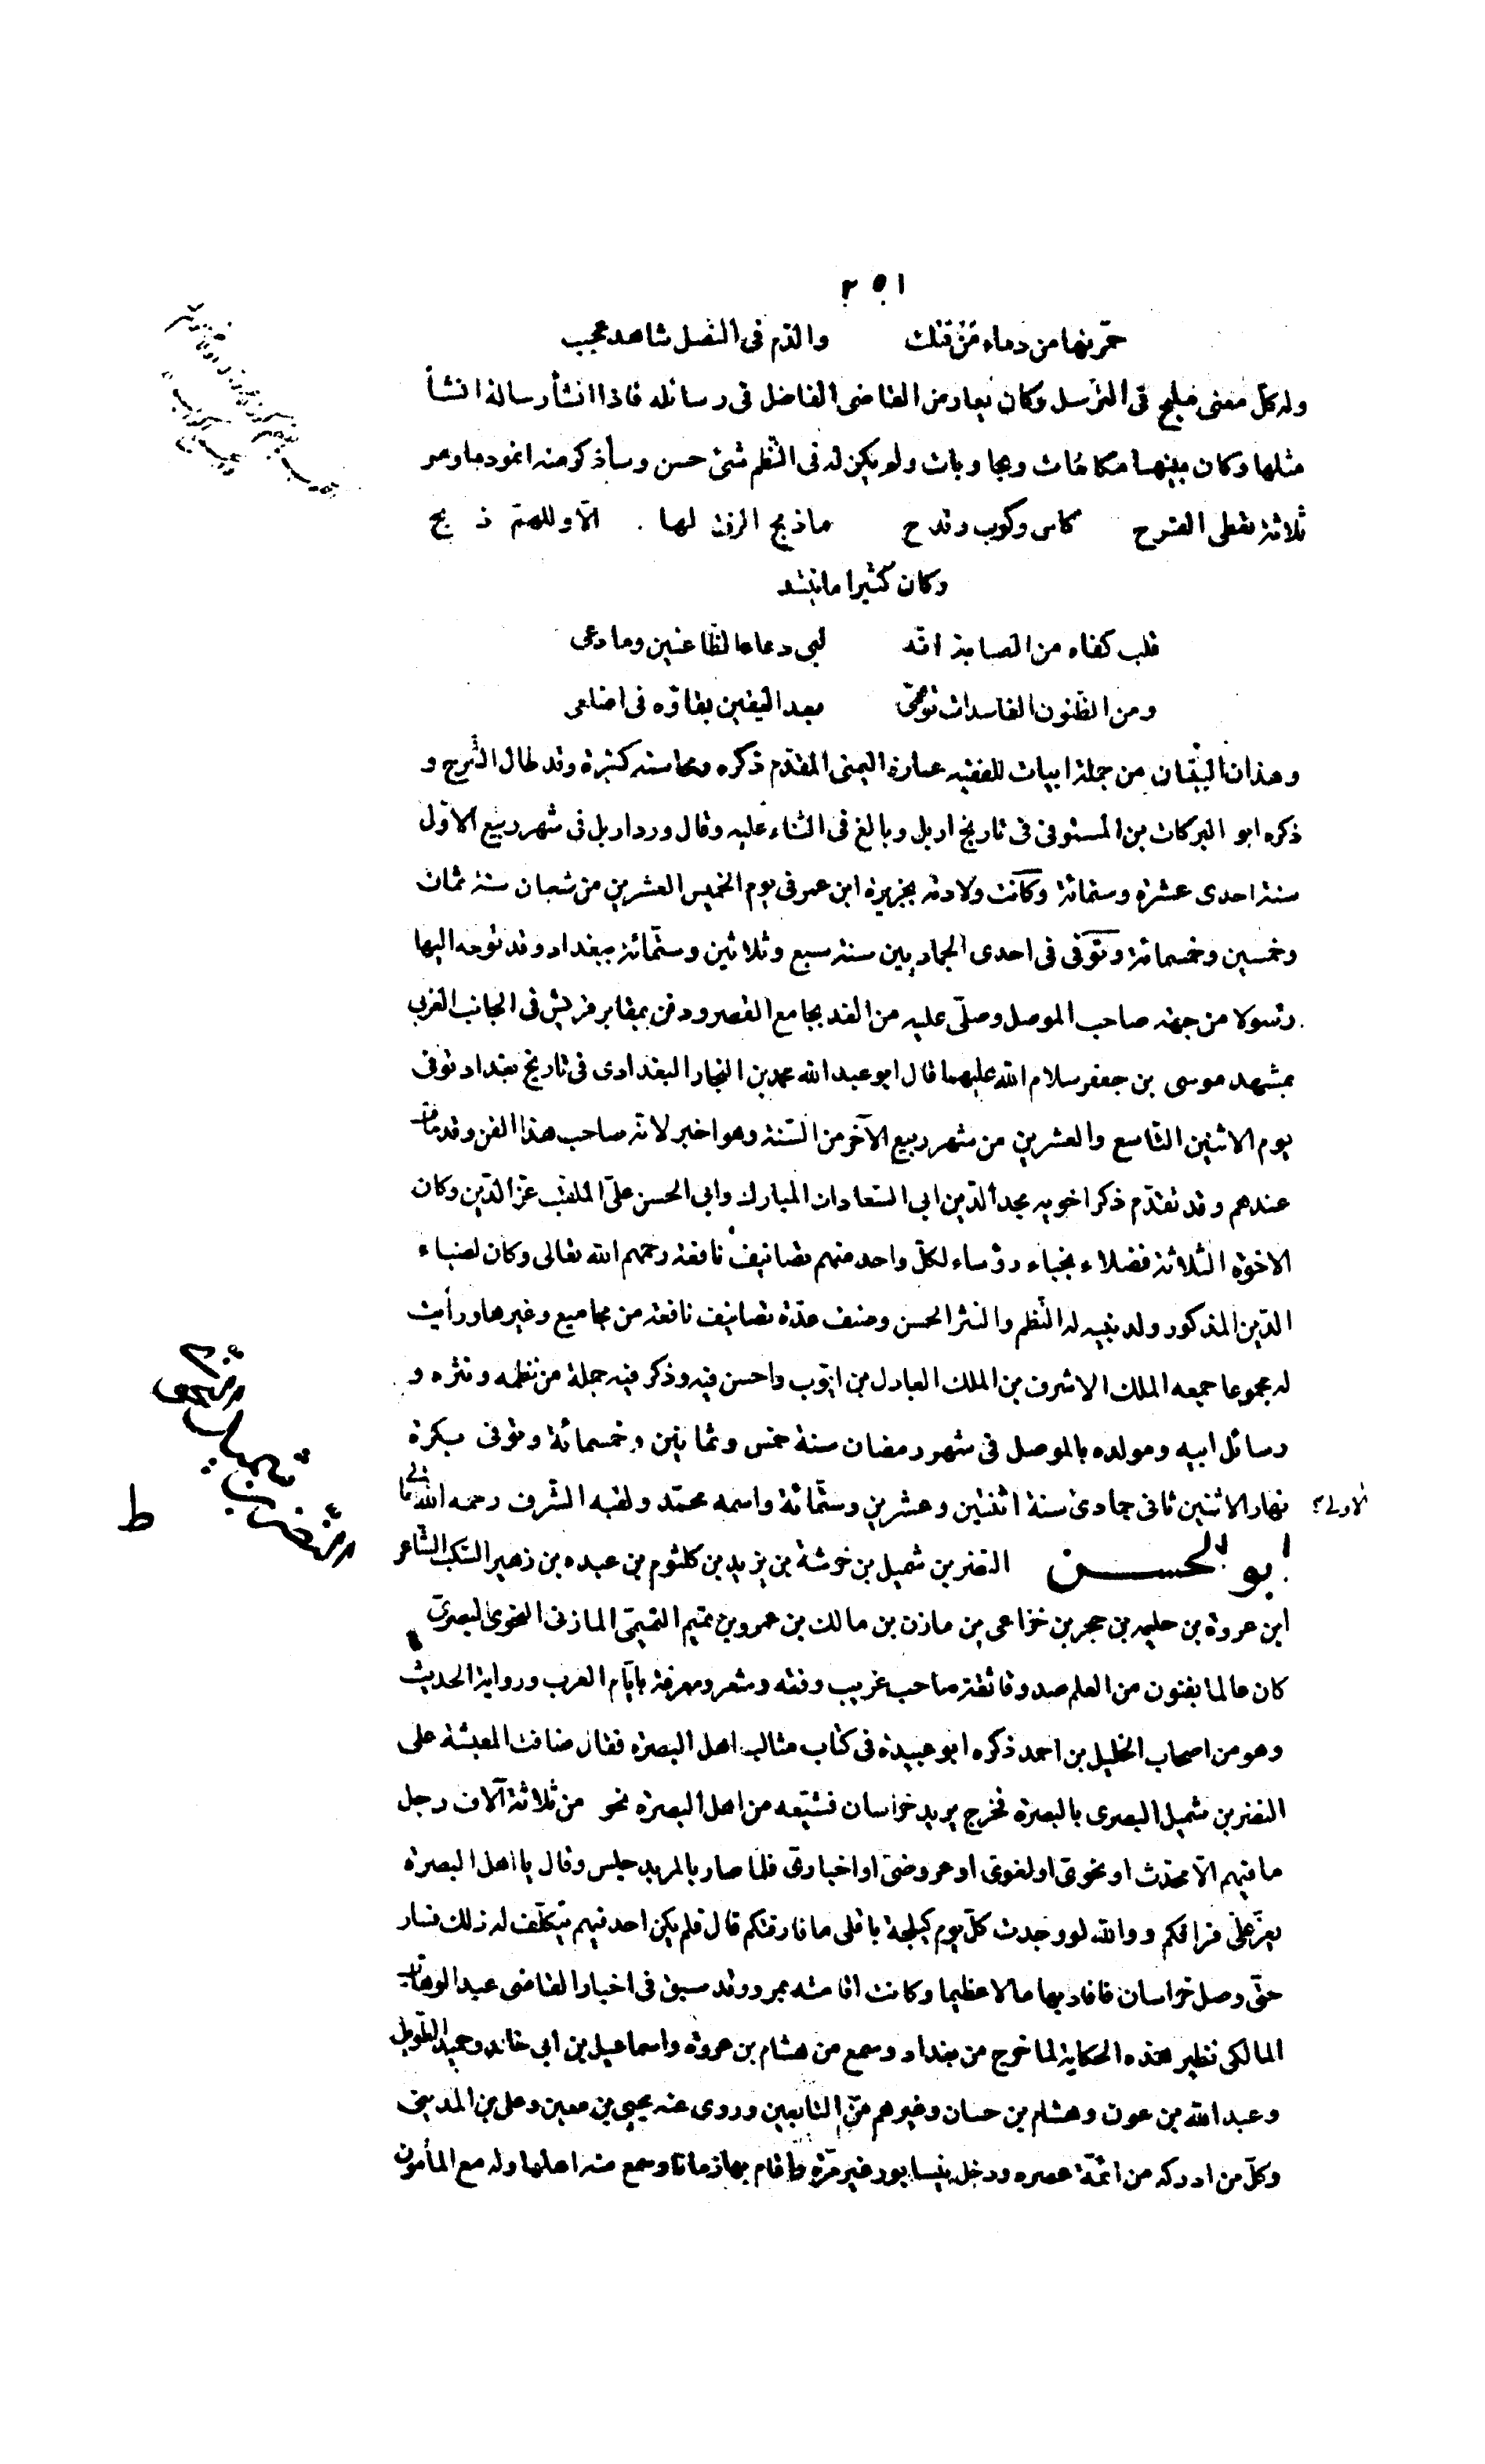 ٢٥١
حمرتها من دماء من قتلت والدم فى النصل شاهد عجب
وله كل معنى مليح فى الترسل وكان يعارض القاضى الفاضل فى رسائله فاذا انشأ رسالة انشأ
مثلها وكان بينهما مكاتبات ومجاوبات ولم يكن له فى النظم شئ حسن وسأذكر منه انموذجا وهو
ثلاثة تعطى الفرح كاس وكوب وقدح ماذبح الزق لها الّا وللهمّ ذبح
وكان كثيرا ما ينشد
قلب كفاه من الصبابة انّه لبى دعاء الظاعنين وما دعى
ومن الظنون الفاسدات توهمى بعد اليقين بقاؤه فى اضلعى
وهذان البيتان من جملة ابيات للفقيه عمارة اليمنى المقدم ذكره ومحاسنه كثيرة وقد طال الشرح و
ذكره ابو البركات بن المستوفى فى تاريخ اربل وبالغ فى الثناء عليه وقال ورد اربل فى شهر ربيع الاوّل
سنة احدى عشرة وستمائة وكانت ولادته بجزيرة ابن عمر فى يوم الخميس العشرين من شعبان سنة ثمان
وخمسين وخمسمائة وتوفى فى احدى الجماديين سنة سبع وثلاثين وستّمائة ببغداد وقد توجه اليها
رسولا من جهة صاحب الموصل وصلّى عليه من الغد بجامع القصر ودفن بمقابر قريش فى الجانب الغربى
بمشهد موسى بن جعفر سلام الله عليهما قال ابو عبد الله محمد بن النجار البغدادى فى تاريخ بغداد توفى
يوم الاثنين التاسع والعشرين من شهر ربيع الآخر من السّنة وهو اخبر لانّه صاحب هذا الفن وقد مات
عندهم وقد تقدّم ذكر اخويه مجد الدّين ابى السّعادات المبارك وابى الحسن علىّ الملقب عزّ الدّين وكان
الاخوة الثلاثة فضلاء نجباء رؤساء لكلّ واحد منهم تصانيف نافعة رحمهم الله تعالى وكان لضياء
الدّين المذكور ولد نبيه له النّظم والنثر الحسن وصنف عدّة تصانيف نافعة من مجاميع وغيرها ورأيت
له مجموعا جمعه الملك الاشرف بن الملك العادل بن ايّوب واحسن فيه وذكر فيه جملة من نظمه ونثره و
رسائل ابيه ومولده بالموصل فى شهر رمضان سنة خمس وثمانين وخمسمائة وتوفى بكرة
نهار الاثنين ثانى جمادى سنة اثنتين وعشرين وستّمائة واسمه محمّد ولقبه الشّرف رحمه الله تعالى
الاولى
ابو الحسن النّضر بن شميل بن خرشة بن يزيد بن كلثوم بن عبده بن زهير السّكب الشّاعر
ابن عروة بن حليمه بن حجر بن خزاعى بن مازن بن مالك بن عمرو بن تميم التميمىّ المازنى النحوى البصرىّ
كان عالما بفنون من العلم صدوقا ثقة صاحب غريب وفقه وشعر ومعرفة بايّام العرب ورواية الحديث
وهو من اصحاب الخليل بن احمد ذكره ابو عبيدة فى كتاب مثالب اهل البصرة فقال ضاقت المعيشة على
النضر بن شميل البصرى بالبصرة فخرج يريد خراسان فشيّعه من اهل البصرة نحو من ثلاثة آلاف رجل
ما فيهم الّا محدّث او نحوىّ او لغوىّ او عروضىّ او اخبارىّ فلما صار بالمربد جلس وقال يا اهل البصرة
يعزّ علىّ فراقكم ووالله لو وجدت كلّ يوم كيلجة باقلى ما فارقتكم قال فلم يكن احد فيهم يتكلّف له ذلك فسار
حتّى وصل خراسان فافاد بها مالا عظيما وكانت اقامته بمرو وقد سبق فى اخبار القاضى عبد الوهاب
المالكى نظير هذه الحكاية لما خرج من بغداد وسمع من هشام بن عروة واسماعيل بن ابى خالد وحميد الطّويل
وعبد الله بن عون وهشام بن حسان وغيرهم من التّابعين وروى عنه يحيى بن معين وعلى بن المدينى
وكلّ من ادركه من ائمّة عصره ودخل نيسابور غير مرّة واقام بها زمانا وسمع منه اهلها وله مع المأمون
النّضر بن شميل
النحوى
ط